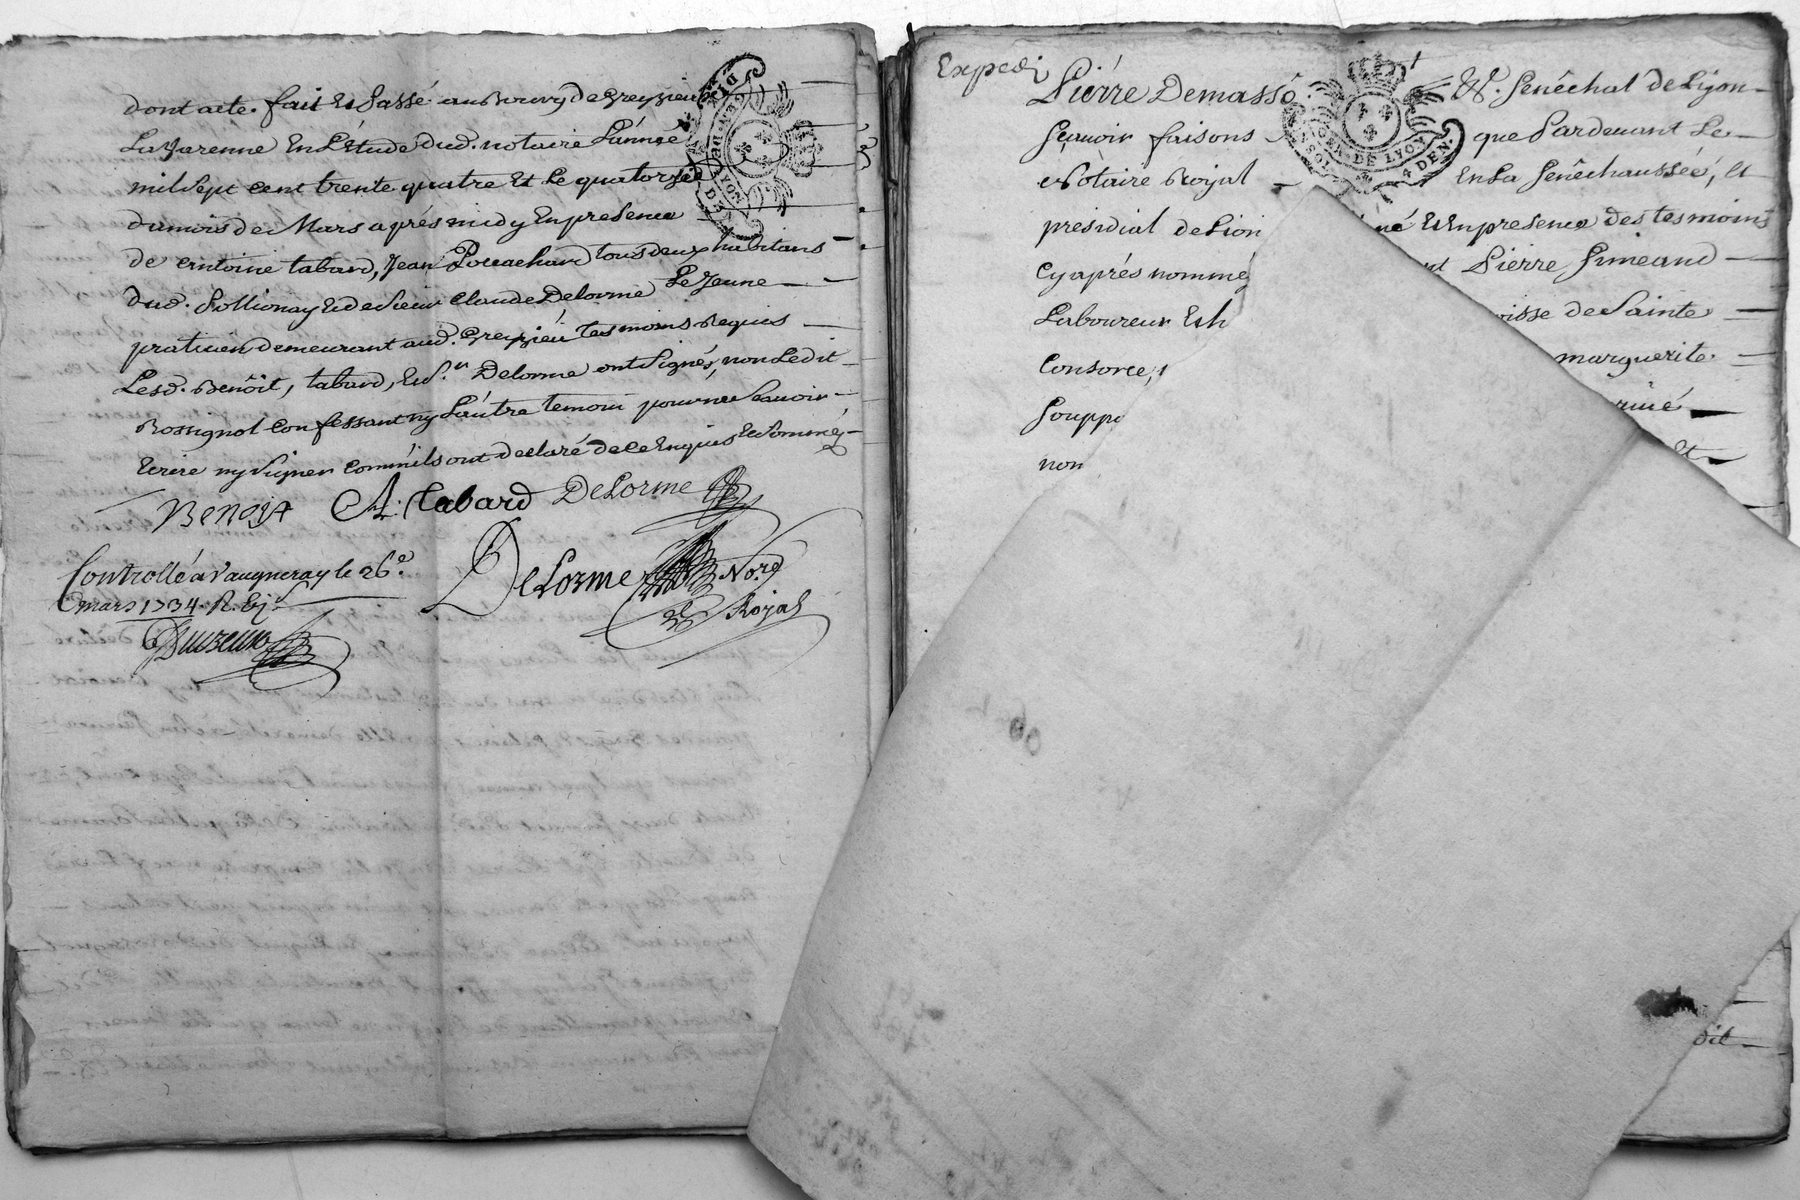 dont acte. fait et Passé au Bourg de Greyzieu
La Varenne En L'Etude dud. notaire L'année
mil sept cent trente quatre Et Le quatorze
du mois de Mars après midy En presence
de Antoine tabard, Jean Pocachard tous deux habitans
dud. Pollionay Et de Sieur Claude Delorme Le Jeune
praticien demeurant aud. Greyzieu tesmoins Requis
Lesd. Benoit, tabard, Et Sr. Delorme ont Signés, non Ledit
Rossignol Confessant ny L'autre temoin pour ne Scavoir
Ecrire ny Signer Comm'ils ont declaré de ce Enquis Et Sommés
Benoit A. Tabard Delorme
Delorme Nore
Royal
Controllé a Vaugneray le 26e
mars 1734. R.
DEN. DE LYON
Expedi
Pierre Demasso Sénêchal de Lyon
Sçavoir faisons que Pardevant Le
Notaire Royal En La Sénêchaussée, et
présidial de Lion Et En presence des tesmoins
Cy après nommé Pierre Simeand
Laboureur Et h oisse de Sainte
Consorce, marguerite
Souppo
non et
GEN. DE LYON
4 DEN.
dit